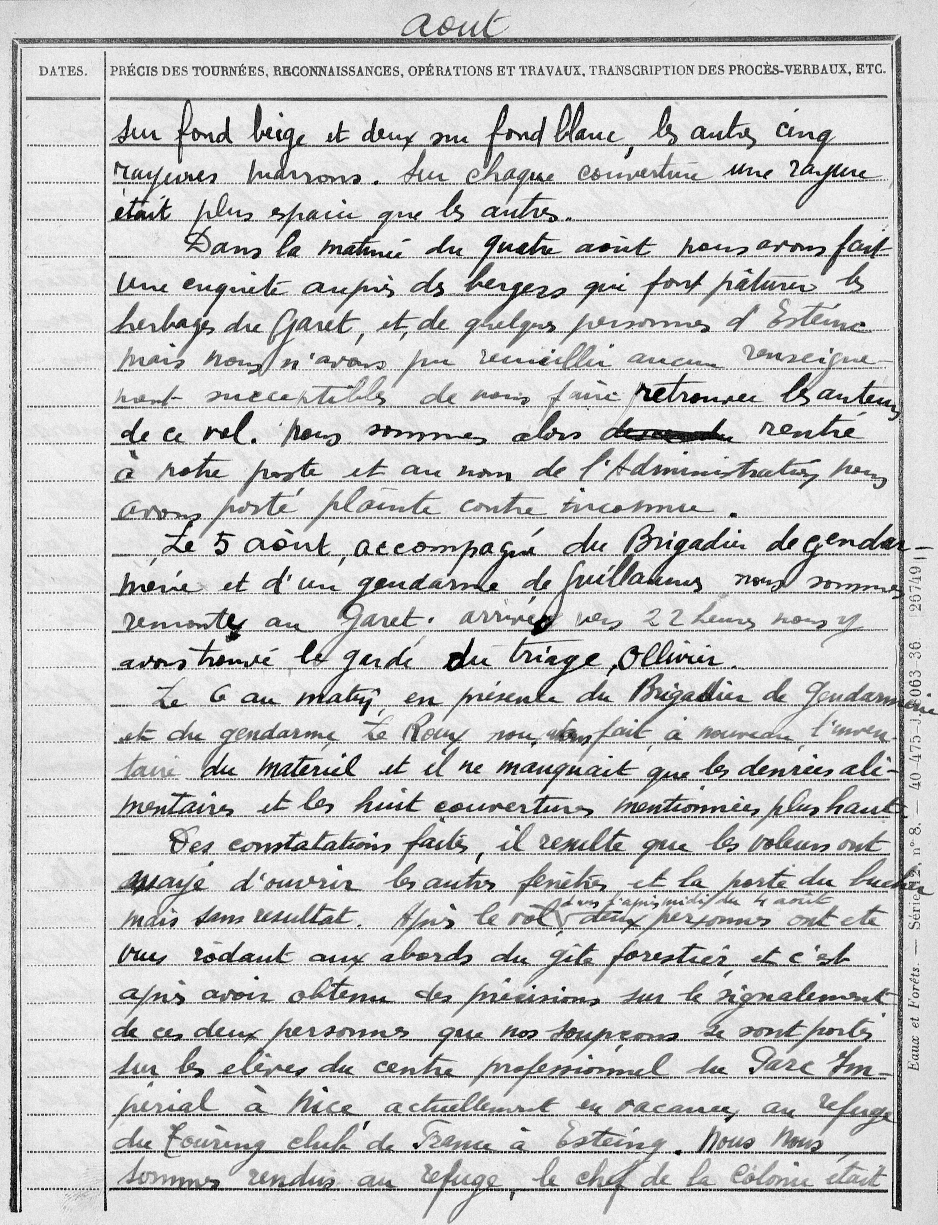 Aout
DATES. PRÉCIS DES TOURNÉES, RECONNAISSANCES, OPÉRATIONS ET TRAVAUX, TRANSCRIPTION DES PROCÈS-VERBAUX, ETC.
sur fond beige et deux sur fond blanc, les autres cinq
rayures marrons. Sur chaque couverture une rayure
était plus espain que les autres.
Dans la matinée du quatre août nous avons fait
une enquête auprès des bergers qui font pâturer les
herbages du Garet, et de quelques personnes d'Esteinc
mais nous n'avons pu recueillir aucun renseigne-
ment succeptibles de nous faire retrouver les auteurs
de ce vol. Nous sommes alors rentré
à notre poste et au nom de l'Administration nous
avons porté plainte contre inconnu.
Le 5 août, accompagné du Brigadier de gendar-
merie et d'un gendarme de Guillaumes nous sommes
remontés au Garet. arrivés vers 22 heures nous y
avons trouvé le garde du triage, Ollivier.
Le 6 au matin, en présence du Brigadier de Gendarmerie
et du gendarme Le Roux nous avons fait, à nouveau, l'inven-
taire du materiel et il ne manquait que les denrées ali-
mentaires et les huit couvertures mentionnées plus haut.
Des constatations faites, il resulte que les voleurs ont
essayé d'ouvrir les autres fenêtres et la porte du bucher
mais sans resultat. Après le vol, dans l'après midi du 4 août
deux personnes ont été
vues rôdant aux abords du gîte forestier et c'est
après avoir obtenu des précisions sur le signalement
de ces deux personnes que nos soupçons se sont portés
sur les elèves du centre professionnel du Parc Im-
périal à Nice actuellement en vacances, au refuge
du Touring club de France à Esteing. Nous nous
sommes rendus au refuge, le chef de la Colonie était
Eaux et Forêts. — Série 12 n° 8. — 40-475-J. 063-36 [26749]